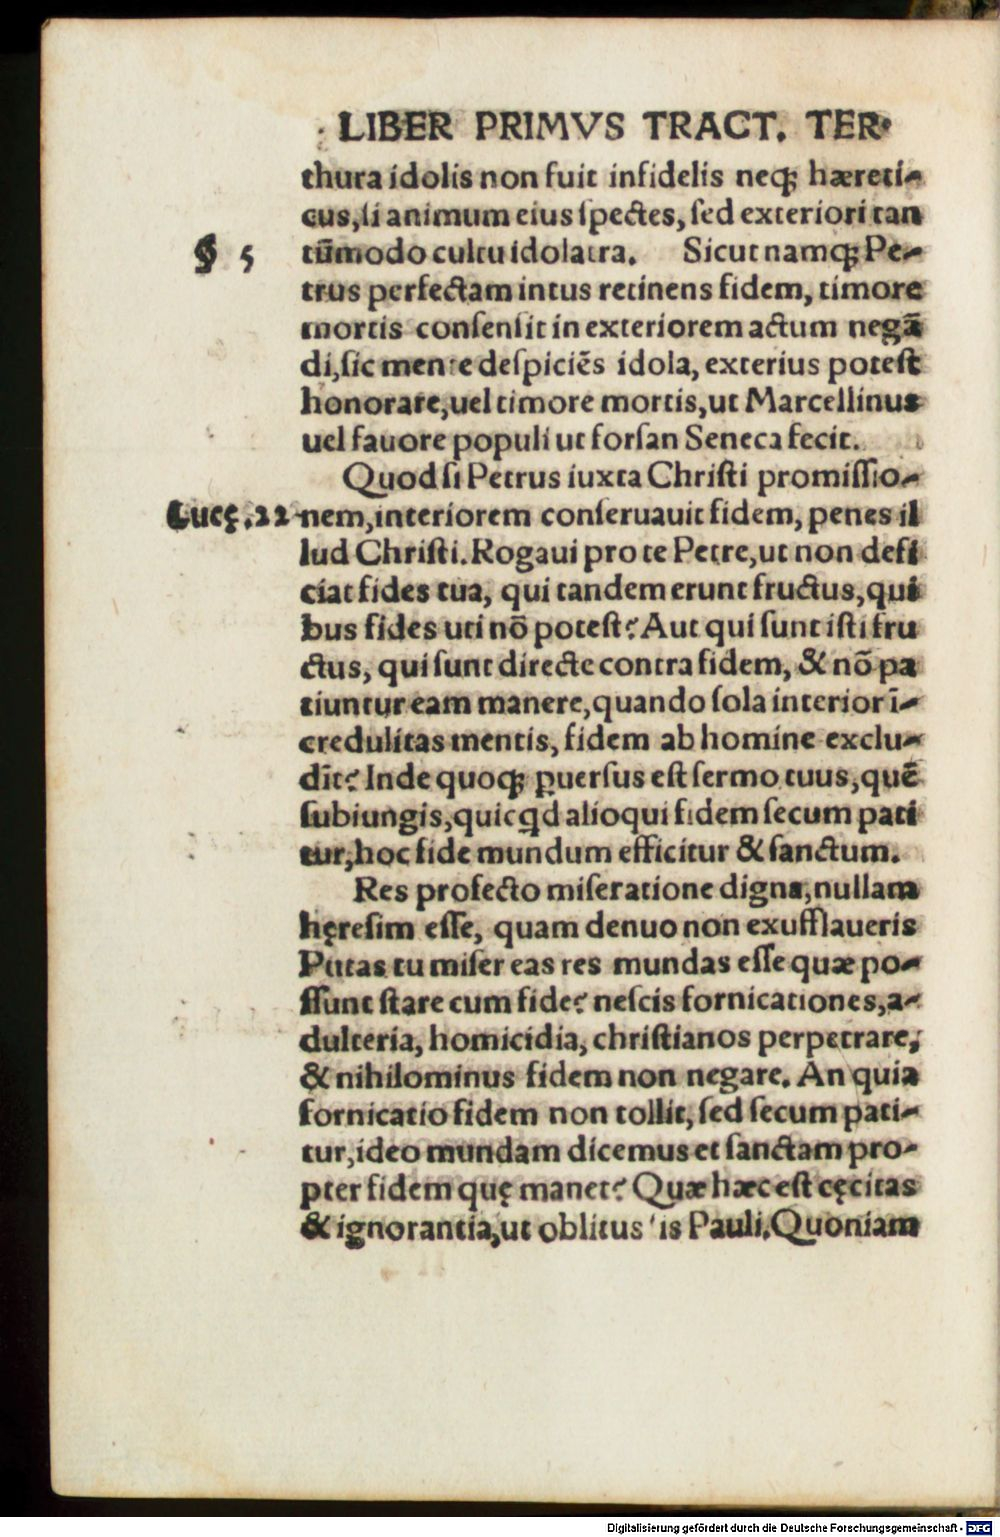 LIBER PRIMVS TRACT. TER.
thura idolis non fuit infidelis neqꝫ hæreti-
cus, si animum eius spectes, sed exteriori tan
§ 5 tūmodo cultu idolatra. Sicut namqꝫ Pe-
trus perfectam intus retinens fidem, timore
mortis consensit in exteriorem actum negā
di, sic mente despiciēs idola, exterius potest
honorare, uel timore mortis, ut Marcellinus
uel fauore populi ut forsan Seneca fecit.
Quod si Petrus iuxta Christi promissio-
Lucę. 22 nem, interiorem conseruauit fidem, penes il
lud Christi. Rogaui pro te Petre, ut non defi
ciat fides tua, qui tandem erunt fructus, qui
bus fides uti nō potest? Aut qui sunt isti fru
ctus, qui sunt directe contra fidem, & nō pa
tiuntur eam manere, quando sola interior ī-
credulitas mentis, fidem ab homine exclu-
dīt? Inde quoqꝫ ꝑuersus est sermo tuus, quē
subiungis, quicqd alioqui fidem secum pati
tur, hoc fide mundum efficitur & sanctum.
Res profecto miseratione digna, nullam
hęresim esse, quam denuo non exufflaueris
Putas tu miser eas res mundas esse quæ po-
ssunt stare cum fide? nescis fornicationes, a-
dulteria, homicidia, christianos perpetrare,
& nihilominus fidem non negare. An quia
fornicatio fidem non tollit, sed secum pati-
tur, ideo mundam dicemus et sanctam pro-
pter fidem quę manet? Quæ hæc est cęcitas
& ignorantia, ut oblitus sis Pauli. Quoniam
Digitalisierung gefördert durch die Deutsche Forschungsgemeinschaft - DFG